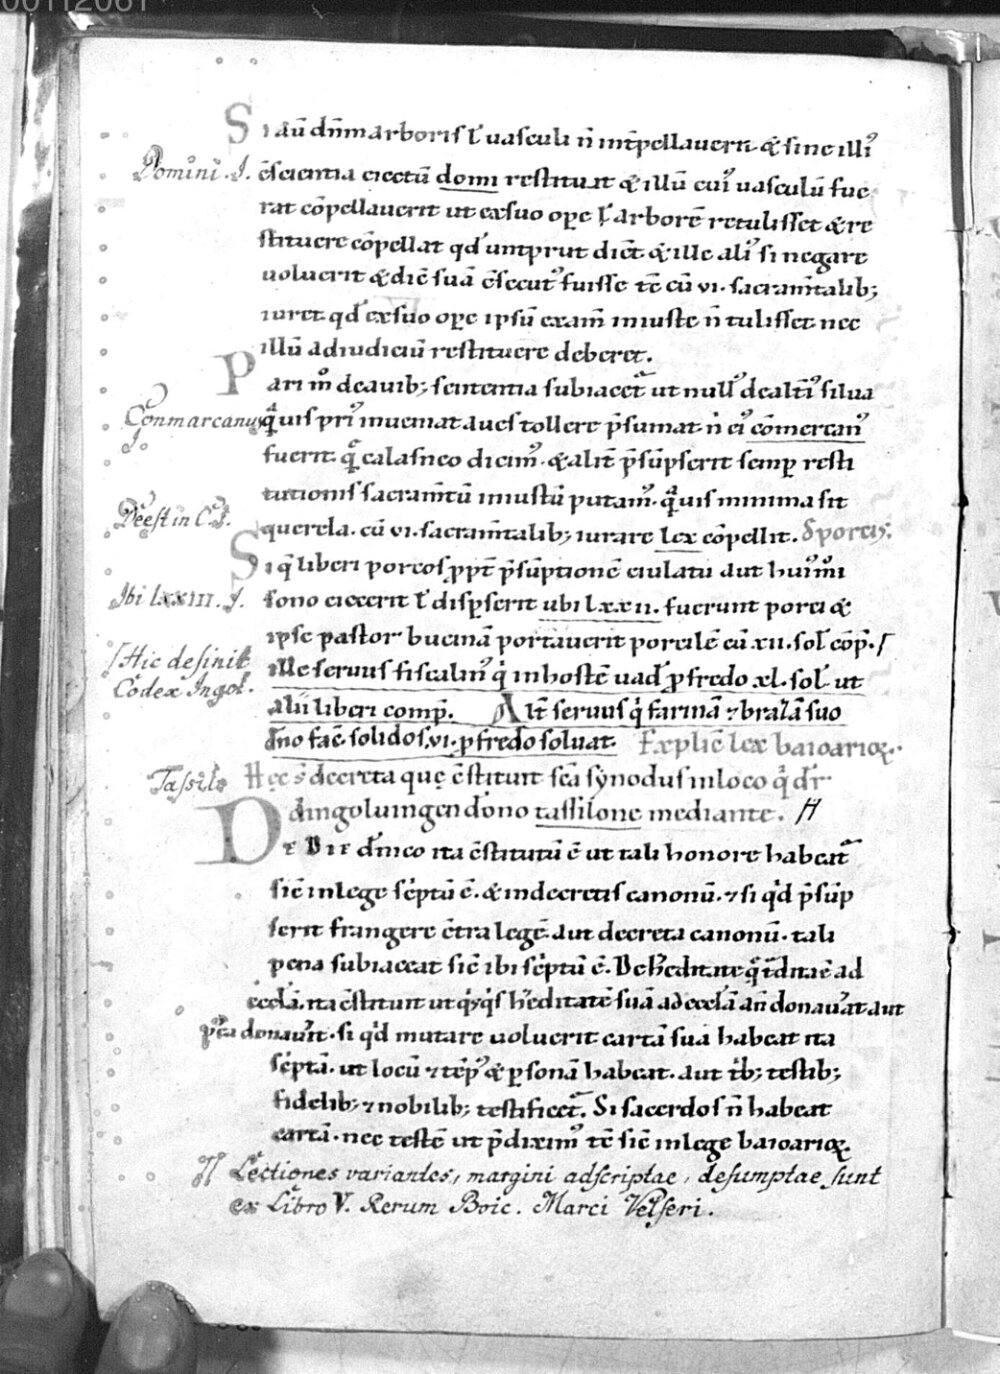 00112061
Si aū dn̄m arboris ł uasculi n̄ int̄pellauerit & sine illiꝰ
Domini. J.
c̄scientia eiectū domi restituit & illū cuiꝰ uasculū fue
rat cōpellauerit ut ex suo oꝑe ł arborē retulisset & re
stituere cōpellat qđ untprut dicit & ille aliꝰ si negare
uoluerit & dic̄ suā c̄secutꝰ fuisse tc̄ cū vi. sacram̄talib;
iuret qđ ex suo oꝑe ipsū exam̄ iniuste n̄ tulisset nec
illū ad iudiciū restituere deberet.
Pari m̊ de auib; sententia subiacet᷑ ut nullꝰ de alt̄iꝰ silua
Conmarcanus J.
q̄uis priꝰ inueniat aues tollere p̄sumat n̄ eiꝰ cōmercanꝰ
fuerit q̄ calasneo dicimꝰ. & alit̄ p̄sūpserit semꝑ resti
tutionis sacram̄tū iniustū putamꝰ. q̄uis minima sit
Deest in C. J.
querela. cū vi. sacram̄talib; iurare lex cōpellit. đ porcis.
Si q̄ liberi porcos ꝓpt̄ p̄sūptionē eiulatu aut huiꝰmi
Ibi LXXIII. J.
sono eiecerit ł disꝑserit ubi lxxii. fuerunt porci &
ipse pastor bucinā portauerit porcilē cū xii. sol cōp̄. /
/ Hic desinit
Codex Ingol.
ille seruus fiscalinꝰ q̇ in hostē uad̄ ꝓ fredo xl. sol ut
alii liberi comp̄. Alt̄ seruus q̇ farinā ⁊ bralā suo
dn̄o fac̄. solidos. vi. ꝓ fredo soluat. Explic̄ lex baioarioꝝ.
Tassilo
Hęc s̄ decreta quę c̄stituit sc̄a synodus in loco q̇ dr̄
dingoluingen dōno tassilone mediante. H
De Die dn̄ico ita c̄stitutū ē ut tali honore habeat᷑
sic̄ in lege sc̄ptū ē. & in decretis canonū. ⁊ si qđ p̄sūp
serit frangere c̄tra legē. aut decreta canonū. tali
pena subiaceat sic̄ ibi sc̄ptū ē. De h̄editate q̄ t̄ditaē ad
eccłā. ita c̄stituit ut q̇sq̇s h̄editatē suā ad eccłā an̄ donau̅at aut
p̄ea donau̅it. si qđ mutare uoluerit cartā suā habeat ita
sc̄ptā. ut locū ⁊ tēpꝰ & ꝑsonā habeat. aut t̄b; testib;
fidelib; ⁊ nobilib; testificet᷑. Si sacerdos n̄ habeat
cartā. nec testē ut p̄diximꝰ tc̄ sic̄ in lege baioarioꝝ
H Lectiones variantes, margini adscriptae, desumptae sunt
ex Libro V. Rerum Boic. Marci Velseri.